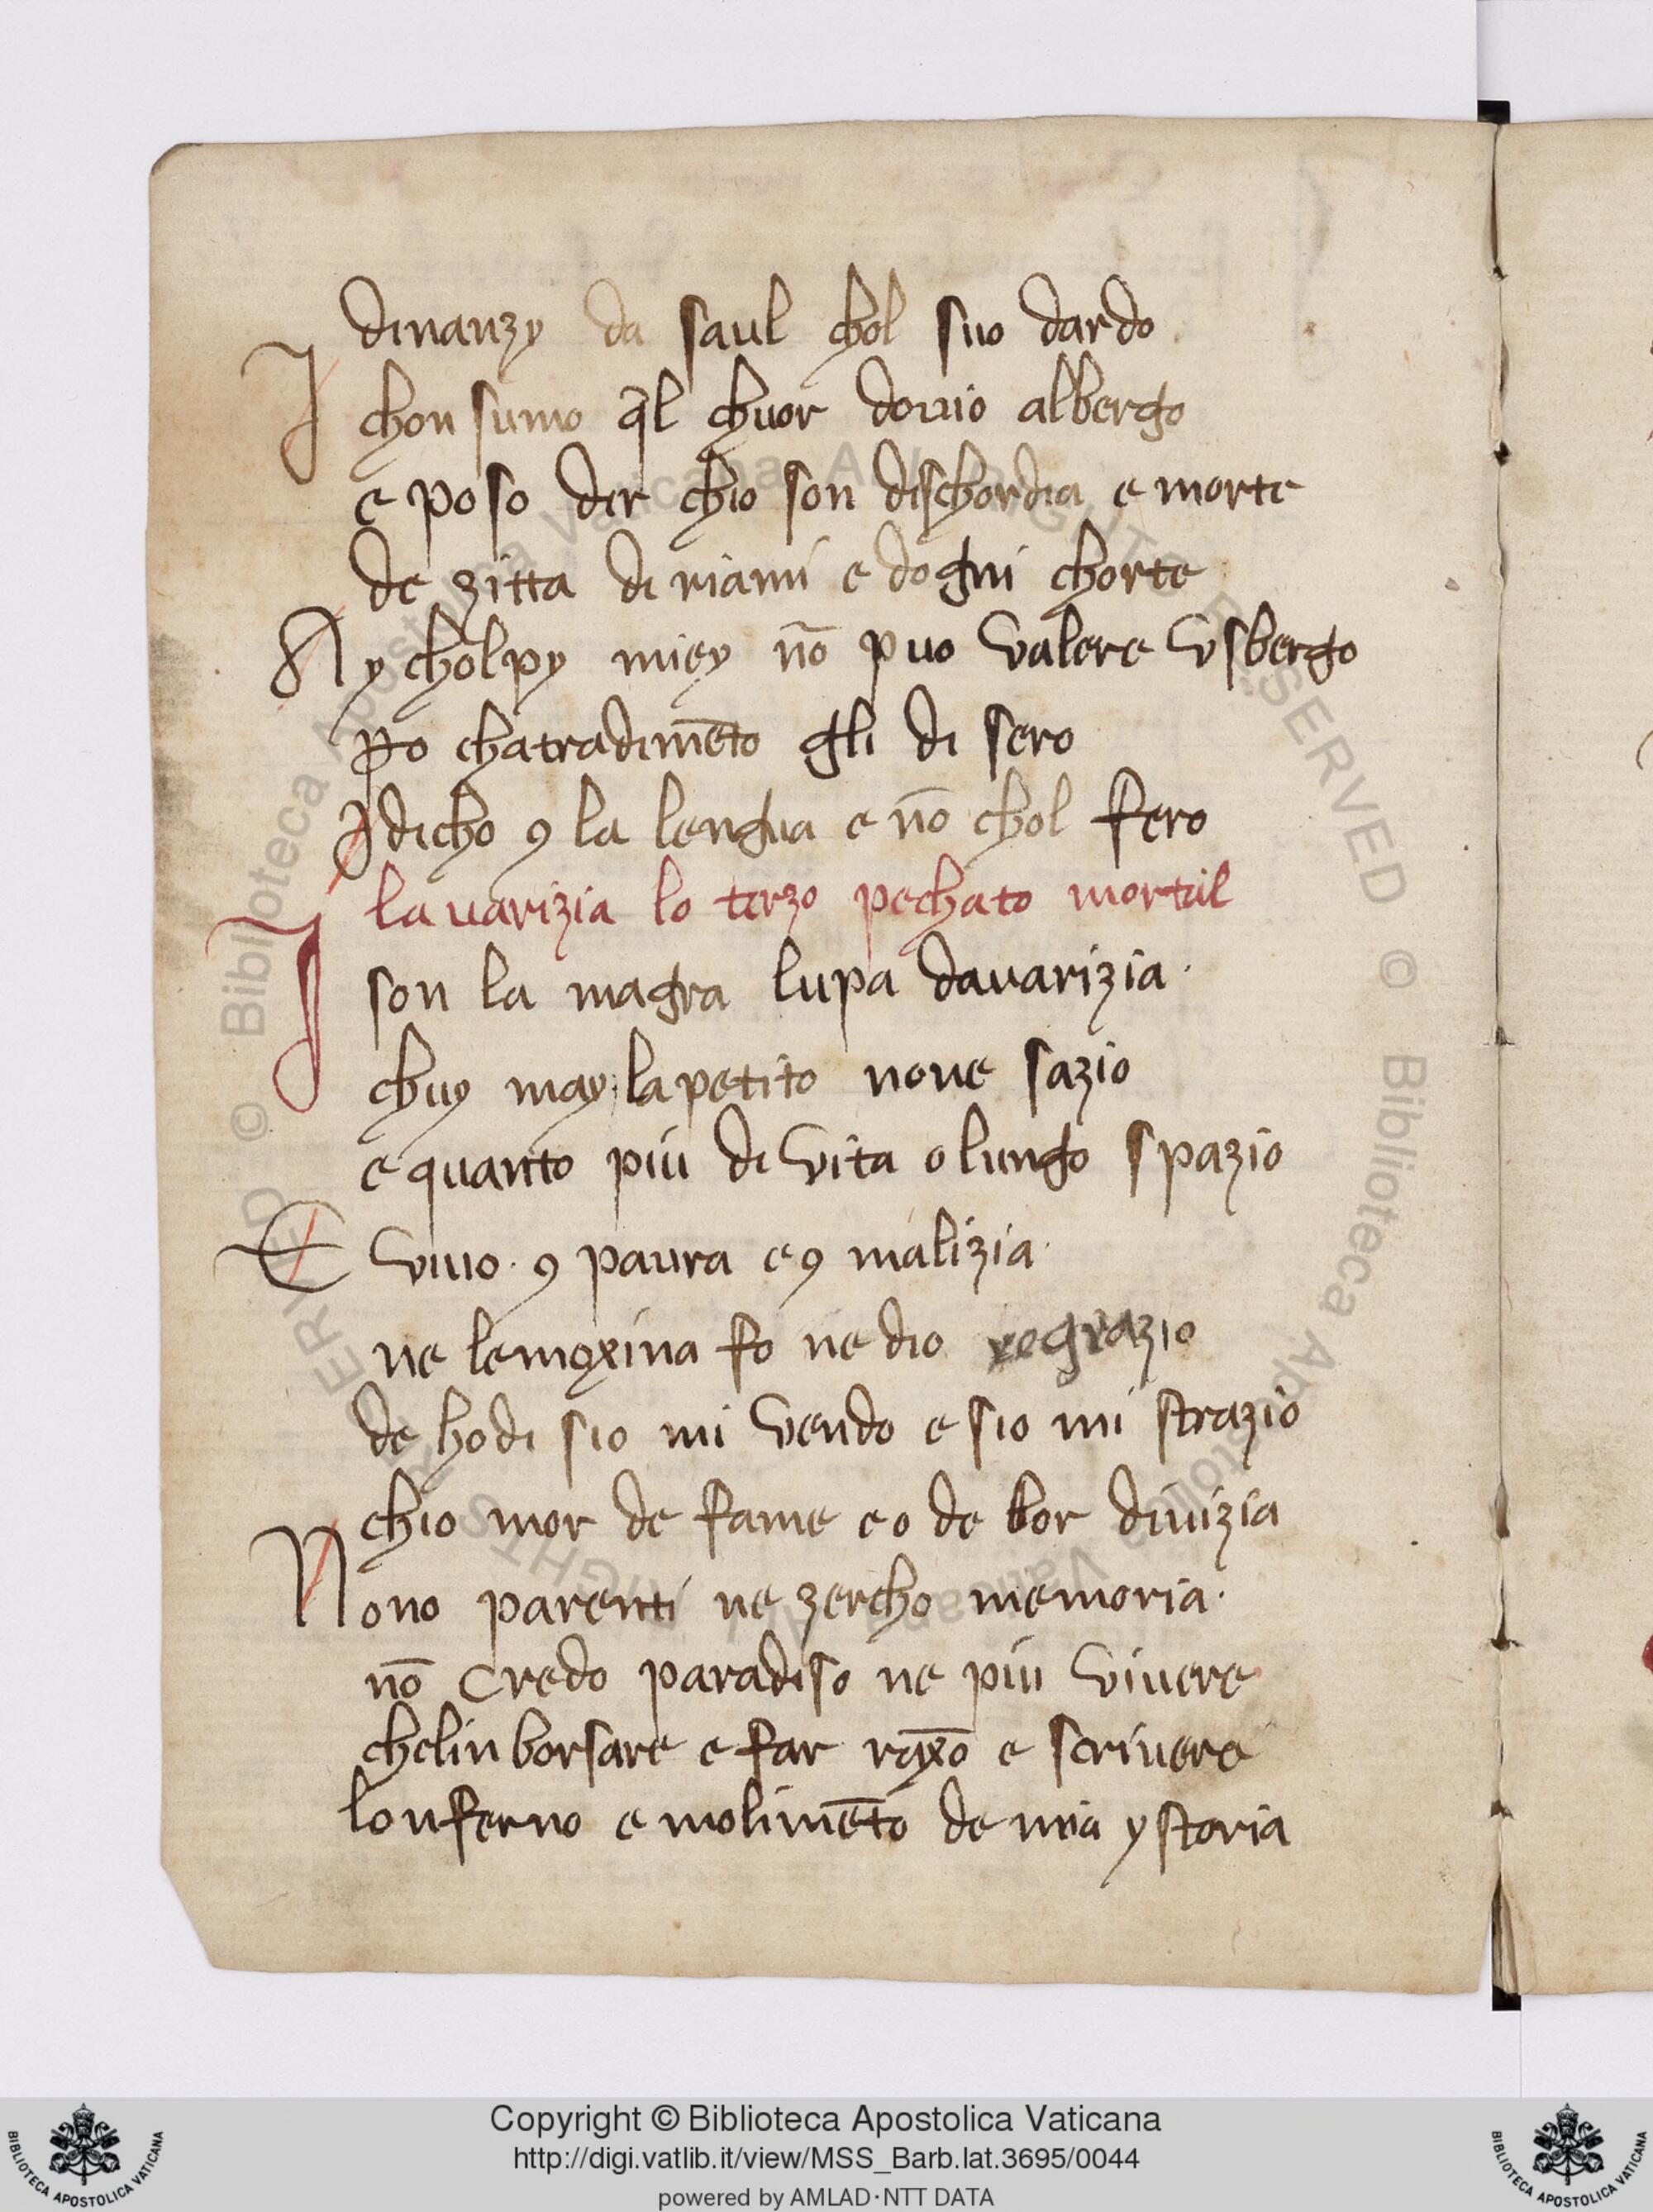 dinanzy da saul chol suo dardo
I chonsumo q̄l chuor douio albergo
e poso dir chio son dischordia e morte
de zitta di riami e dogni chorte
Ay cholpy miey nō puo valere vsbergo
po chatradimēto gli di sero
I dicho ꝯ la lengua e nō chol fero
lauarizia lo terzo pechato mortal
I son la magra lupa dauarizia
chuy may lapetito none sazio
e quanto piu di vita o lungo spazio
E viuo ꝯ paura e ꝯ malizia
ne lemoxina fo ne dio regrazio
de hodi sio mi vendo e sio mi strazio
chio mor de fame e o de bor diuizia
Nono parenti ne zercho memoria
nō credo paradiso ne piu viuere
chelinborsare e far raxō e scriuere
lonferno e molimēto de mia ystoria
Copyright © Biblioteca Apostolica Vaticana
http://digi.vatlib.it/view/MSS_Barb.lat.3695/0044
powered by AMLAD·NTT DATA